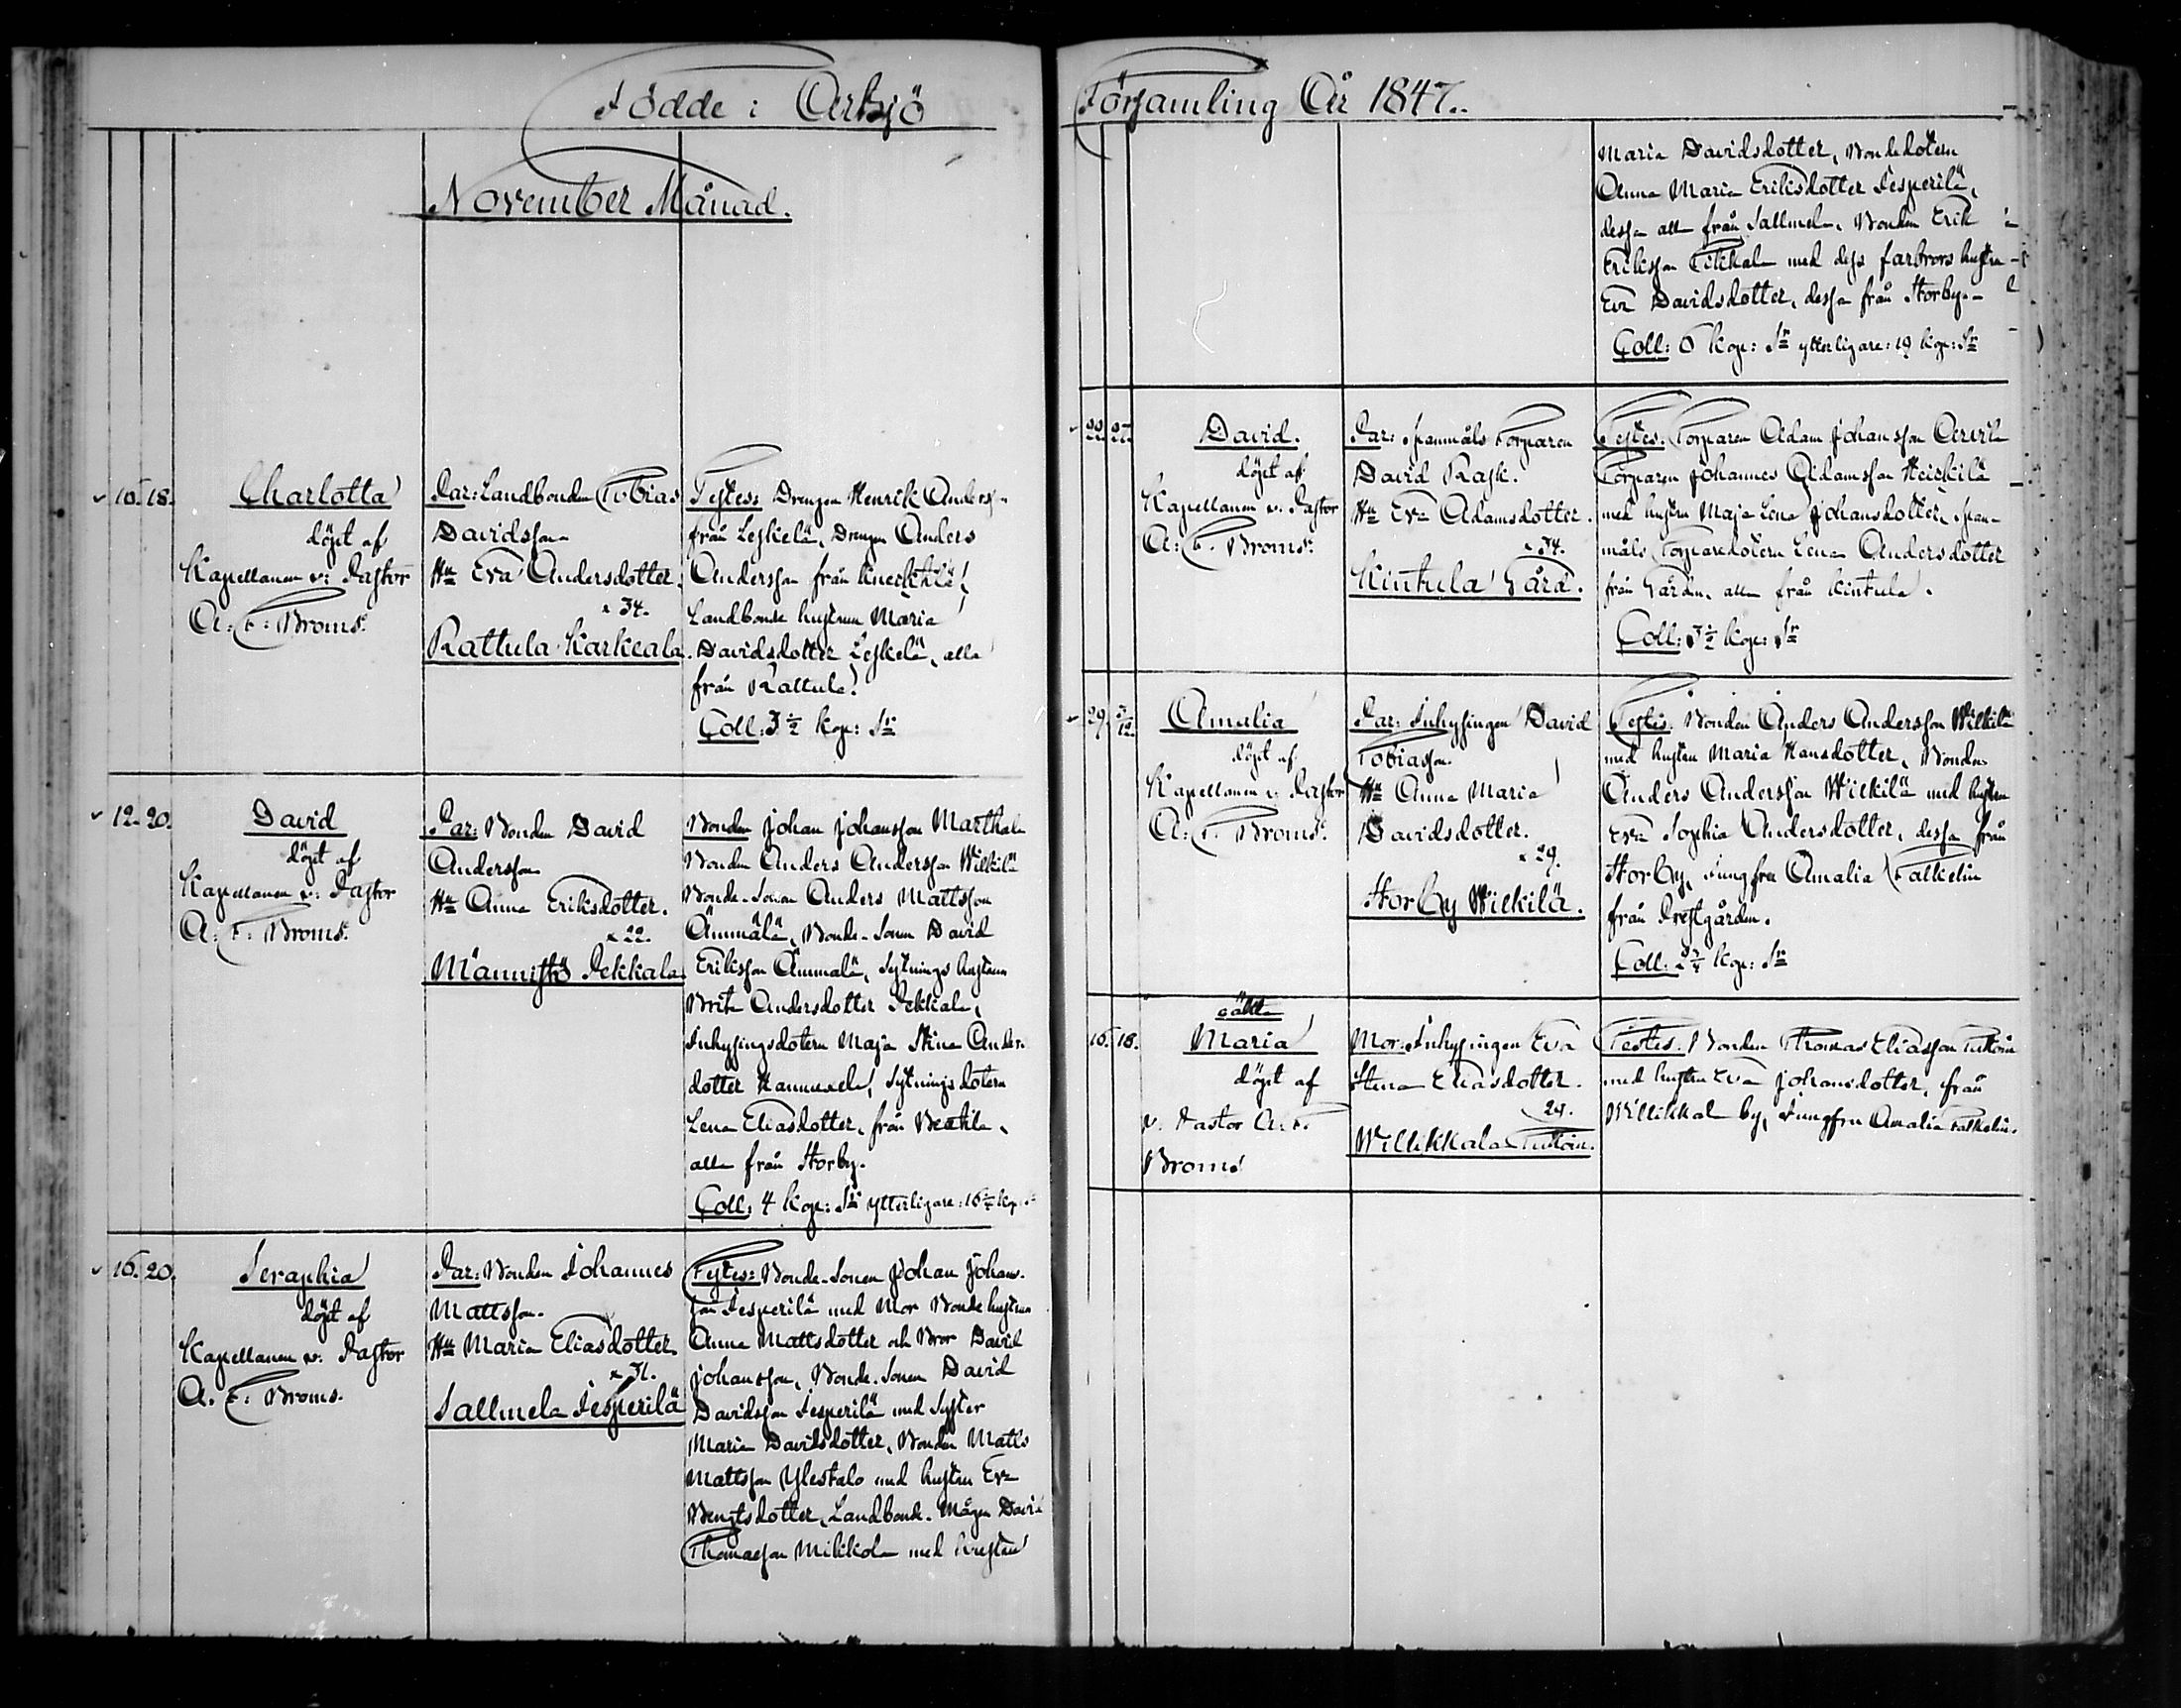 Födde i Artsjö Församling År 1847.
November Månad.
10. 18.
Charlotta
döpt af
Kapellanen v: Pastor
A: F: Broms.
Par: Landbonden Tobias
Davidsson
Hu Eva Andersdotter.
x 34.
Rattula Karkeala
Testes: Drengen Henrik Anders
från Leskelä, Drengen Anders
Andersson från Knecktilä,
Landbonde hustrun Maria
Davidsdotter Leskelä, alla
från Rattula.
Coll: 3 1/2 Kop: Sr
12. 20.
David
döpt af
Kapellanen v: Pastor
A: F: Broms.
Par: Bonden David
Andersson
Hu Anna Eriksdotter.
x 22.
Männistö Pekkala
Bonden Johan Johansson Marthala
Bonden Anders Andersson Wilkilä
Bonde-Sonen Anders Mattsson
Ämmälä, Bonde-Sonen David
Eriksson Ämmälä, Sytnings hustrun
Brita Andersdotter Pekkala,
Inhysingsdotern Maja Stina Anders
dotter Hannuxela, Sytnings dotern
Lena Eliasdotter, från
alla från Storby.
Coll: 4 Kop: Sr ytterligare: 16 1/2 Kop
16. 20.
Seraphia
döpt af
Kapellanen v: Pastor
A. F: Broms.
Par: Bonden Johannes
Mattsson.
Hu Maria Eliasdotter
x 31.
Sallmela Jesperilä
Testes: Bonde-Sonen Johan Johans-
son Jesperilä med Mor Bonde hustrun
Anna Mattsdotter och Bror David
Johansson, Bonde-Sonen David
Davidsson Jesperilä med Syster
Maria Davidsdotter, Bonden Matts
Mattsson Ylestalo med hustru Eva
Bengtsdotter, Landbonde-Mågen David
Thomasson Mikkola med hustrun
Maria Davidsdotter, Bondedotern
Anna Maria Eriksdotter Jesperilä,
dessa alla från Sallmela, Bonden Erik
Eriksson Pikkala med dess farbrors hustru
Eva Davidsdotter, dessa från Storby.
Coll: 6 Kop: Sr ytterligare: 19 Kop: Sr
22. 27.
David.
döpt af
Kapellanen v: Pastor
A: F. Broms.
Par: Spannmåls Torparen
David Rask.
Hu Eva Adamsdotter.
x 34.
Kintula Gård.
Testes: Torparen Adam Johansson Arvila
Torparen Johannes Adamsson Heickilä
med hustru Maja Lena Johansdotter, Span-
måls Torparedotern Lena Andersdotter
från Gården, alla från Kintula.
Coll: 3 1/2 Kop: Sr
29. 5/12.
Amalia
döpt af
Kapellanen v: Pastor
A: F. Broms.
Par: Inhysingen David
Tobiasson.
Hu Anna Maria
Davidsdotter.
x 29.
Storby Wilkilä.
Testes: Bonden Anders Andersson Wilkilä
med hustru Maria Hansdotter, Bonden
Anders Andersson Wilkilä med hustru
Eva Sophia Andersdotter, dessa från
Storby, Jungfru Amalia Falkelin
från Prestgården.
Coll: 2 3/4 Kop: Sr
16. 18.
oäkta
Maria
döpt af
v. Pastor A: F.
Broms
Mor: Inhysingen Eva
Stina Eliasdotter.
24.
Willikkala Tuttoin.
Testes: Bonden Thomas Eliasson Tuttoin
med hustru Eva Johansdotter, från
Willikkala by, Jungfru Amalia Falkelin.